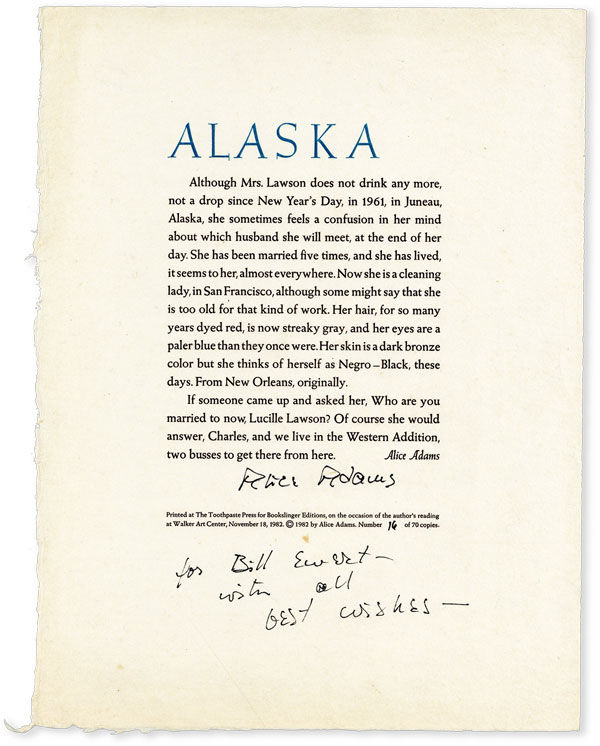 ALASKA
Although Mrs. Lawson does not drink any more,
not a drop since New Year's Day, in 1961, in Juneau,
Alaska, she sometimes feels a confusion in her mind
about which husband she will meet, at the end of her
day. She has been married five times, and she has lived,
it seems to her, almost everywhere. Now she is a cleaning
lady, in San Francisco, although some might say that she
is too old for that kind of work. Her hair, for so many
years dyed red, is now streaky gray, and her eyes are a
paler blue than they once were. Her skin is a dark bronze
color but she thinks of herself as Negro – Black, these
days. From New Orleans, originally.
If someone came up and asked her, Who are you
married to now, Lucille Lawson? Of course she would
answer, Charles, and we live in the Western Addition,
two busses to get there from here. Alice Adams
Alice Adams
Printed at The Toothpaste Press for Bookslinger Editions, on the occasion of the author's reading
at Walker Art Center, November 18, 1982. © 1982 by Alice Adams. Number 16 of 70 copies.
for Bill Ewert –
with all
best wishes –